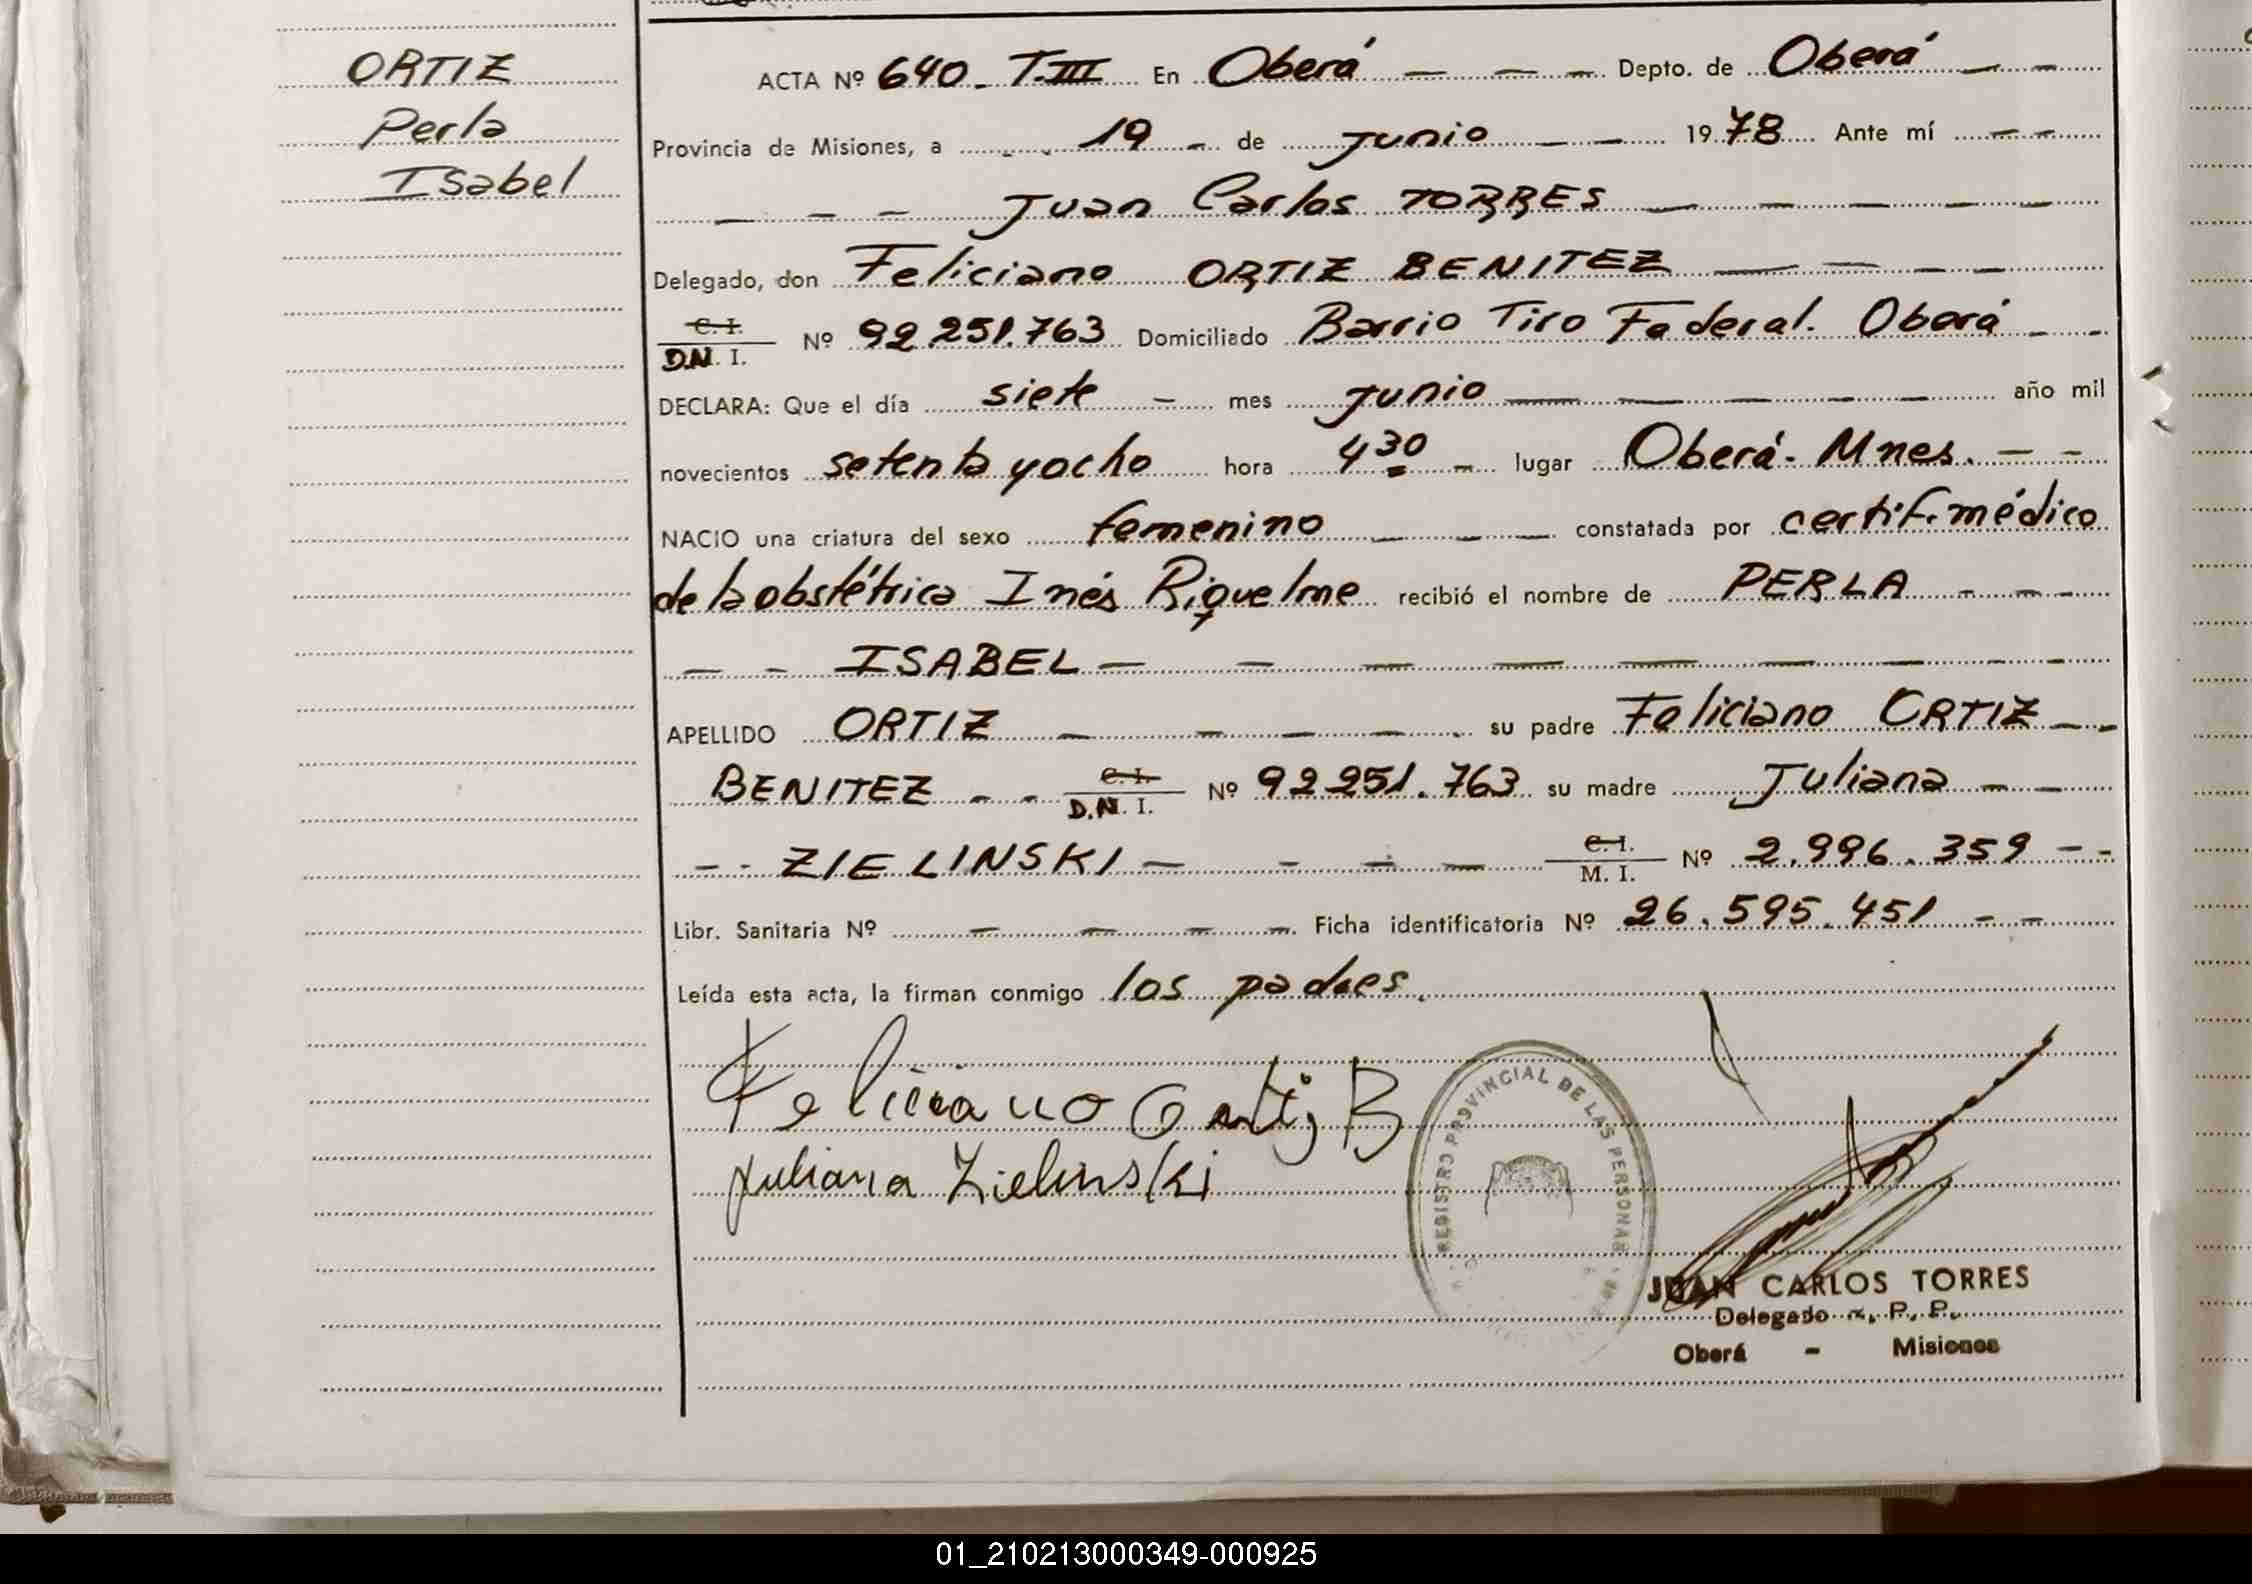 ORTIZ
Perla
Isabel
ACTA Nº 640. T.III En Oberá Depto. de Oberá
Provincia de Misiones, a 19 de junio 1978 Ante mí
Juan Carlos TORRES
Delegado, don Feliciano ORTIZ BENITEZ
C. I.
D.N. I. Nº 92.251.763 Domiciliado Barrio Tiro Federal. Oberá
DECLARA: Que el día siete mes junio año mil
novecientos setenta y ocho hora 4 30 lugar Oberá - Mnes.
NACIO una criatura del sexo femenino constatada por certif. médico
de la obstétrica Inés Riquelme recibió el nombre de PERLA
ISABEL
APELLIDO ORTIZ su padre Feliciano ORTIZ
BENITEZ C. I.
D.N. I. Nº 92251.763 su madre Juliana
ZIELINSKI C. I.
M. I. Nº 2.996.359
Libr. Sanitaria Nº Ficha identificatoria Nº 26.595.451
Leída esta acta, la firman conmigo los padres.
Feliciano Ortiz B
Juliana Zielinski
REGISTRO PROVINCIAL DE LAS PERSONAS
JUAN CARLOS TORRES
Delegado R. P. P.
Oberá - Misiones
01_210213000349-000925